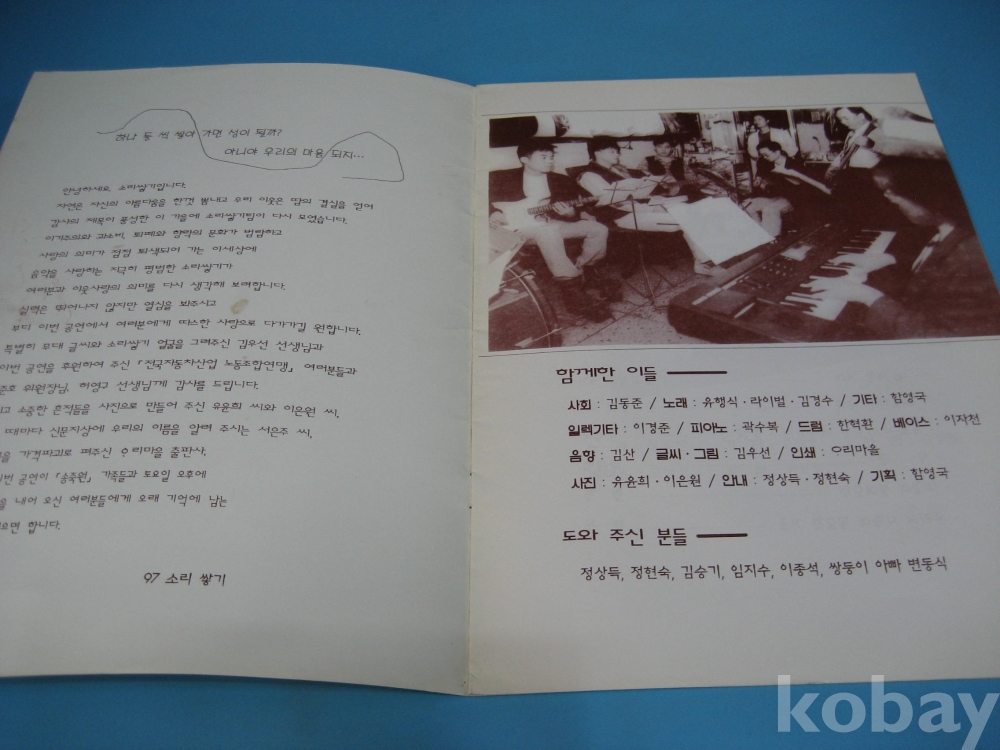 하나 둘 씩 쌓아 가면 성이 될까?
아니야 우리의 마음 되지...
안녕하세요. 소리쌓기입니다.
자연은 자신의 아름다움을 한껏 뽐내고 우리 이웃은 땀의 결실을 얻어
감사의 제목이 풍성한 이 가을에 소리쌓기팀이 다시 모였습니다.
이기주의와 과소비, 퇴폐와 향락의 문화가 범람하고
사랑의 의미가 점점 퇴색되어 가는 이세상에
음악을 사랑하는 지극히 평범한 소리쌓기가
여러분과 이웃사랑의 의미를 다시 생각해 보려합니다.
실력은 뛰어나지 않지만 열심을 봐주시고
부디 이번 공연에서 여러분에게 따스한 사랑으로 다가가길 원합니다.
특별히 무대 글씨와 소리쌓기 얼굴을 그려주신 김우선 선생님과
이번 공연을 후원하여 주신 「전국자동차산업 노동조합연맹」 여러분들과
준호 위원장님, 허영구 선생님께 감사를 드립니다.
고 소중한 흔적들을 사진으로 만들어 주신 유윤희 씨와 이은원 씨,
때마다 신문지상에 우리의 이름을 알려 주시는 서은주 씨,
을 가격파괴로 펴주신 우리마을 출판사,
이번 공연이 「송죽원」 가족들과 토요일 오후에
을 내어 오신 여러분들에게 오래 기억에 남는
으면 합니다.
97 소리 쌓기
함께한 이들
사회 : 김동준 / 노래 : 유행식·라이벌·김경수 / 기타 : 함영국
일렉기타 : 이경준 / 피아노 : 곽수복 / 드럼 : 한혁환 / 베이스 : 이자천
음향 : 김산 / 글씨·그림 : 김우선 / 인쇄 : 우리마을
사진 : 유윤희·이은원 / 안내 : 정상득·정현숙 / 기획 : 함영국
도와 주신 분들
정상득, 정현숙, 김승기, 임지수, 이종석, 쌍둥이 아빠 변동식
kobay